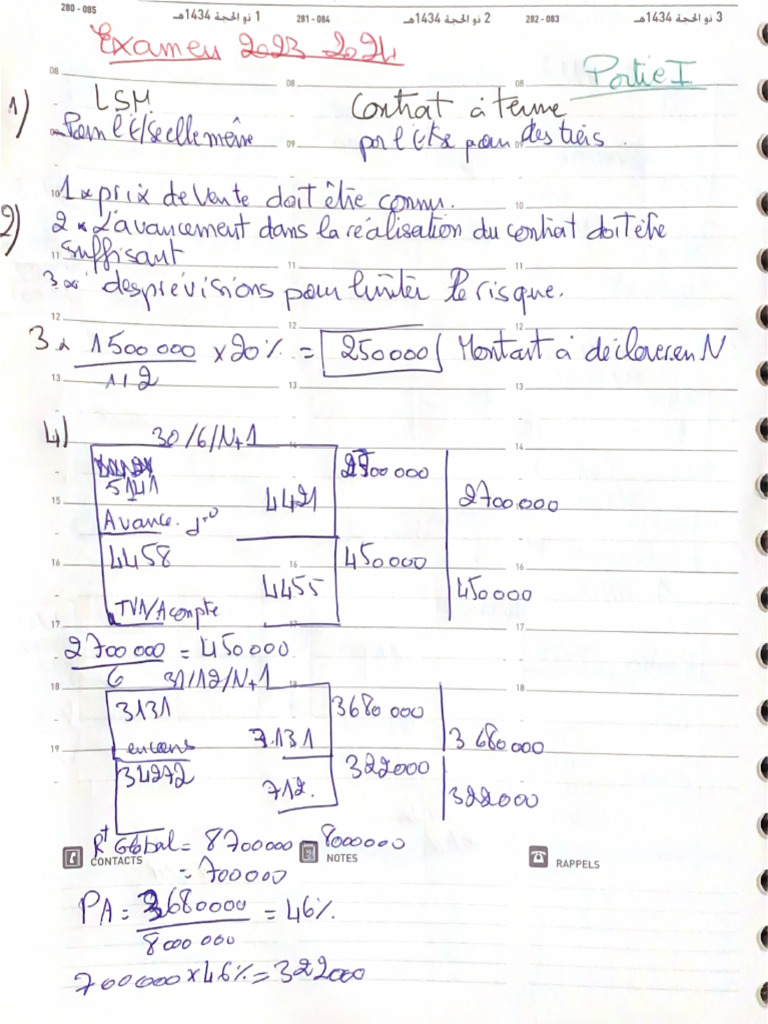 280 - 085
1 ذو الحجة 1434هـ
281 - 084
2 ذو الحجة 1434هـ
282 - 083
3 ذو الحجة 1434هـ
Examen 2023 2024
Partie I
1) LSM Contrat à terme
Pour l'E/se elle même par l'E/se pour des tiers.
2) 1 * prix de vente doit être connu.
2 * L'avancement dans la réalisation du contrat doit être
suffisant
3 * des prévisions pour limiter le risque.
3 * 1500 000 / 1,2 × 20% = 250000 Montant à déclarer en N
4) 30/6/N+1
5141 2700 000
4421 2700 000
Avance
4458 450000
4455 450000
TVA/Acompte
2700 000 / 6 = 450 000
31/12/N+1
3131 3680 000
en cours 7131 3 680 000
34272 322000
712. 322000
Rt Global = 8700000 - 8000000
= 700000
CONTACTS
NOTES
RAPPELS
PA = 3680000 / 8000 000 = 46%
700000 × 46% = 322000
08
08
08
09
09
09
10
10
10
11
11
11
12
12
12
13
13
13
14
14
15
16
16
16
17
17
17
18
18
18
19